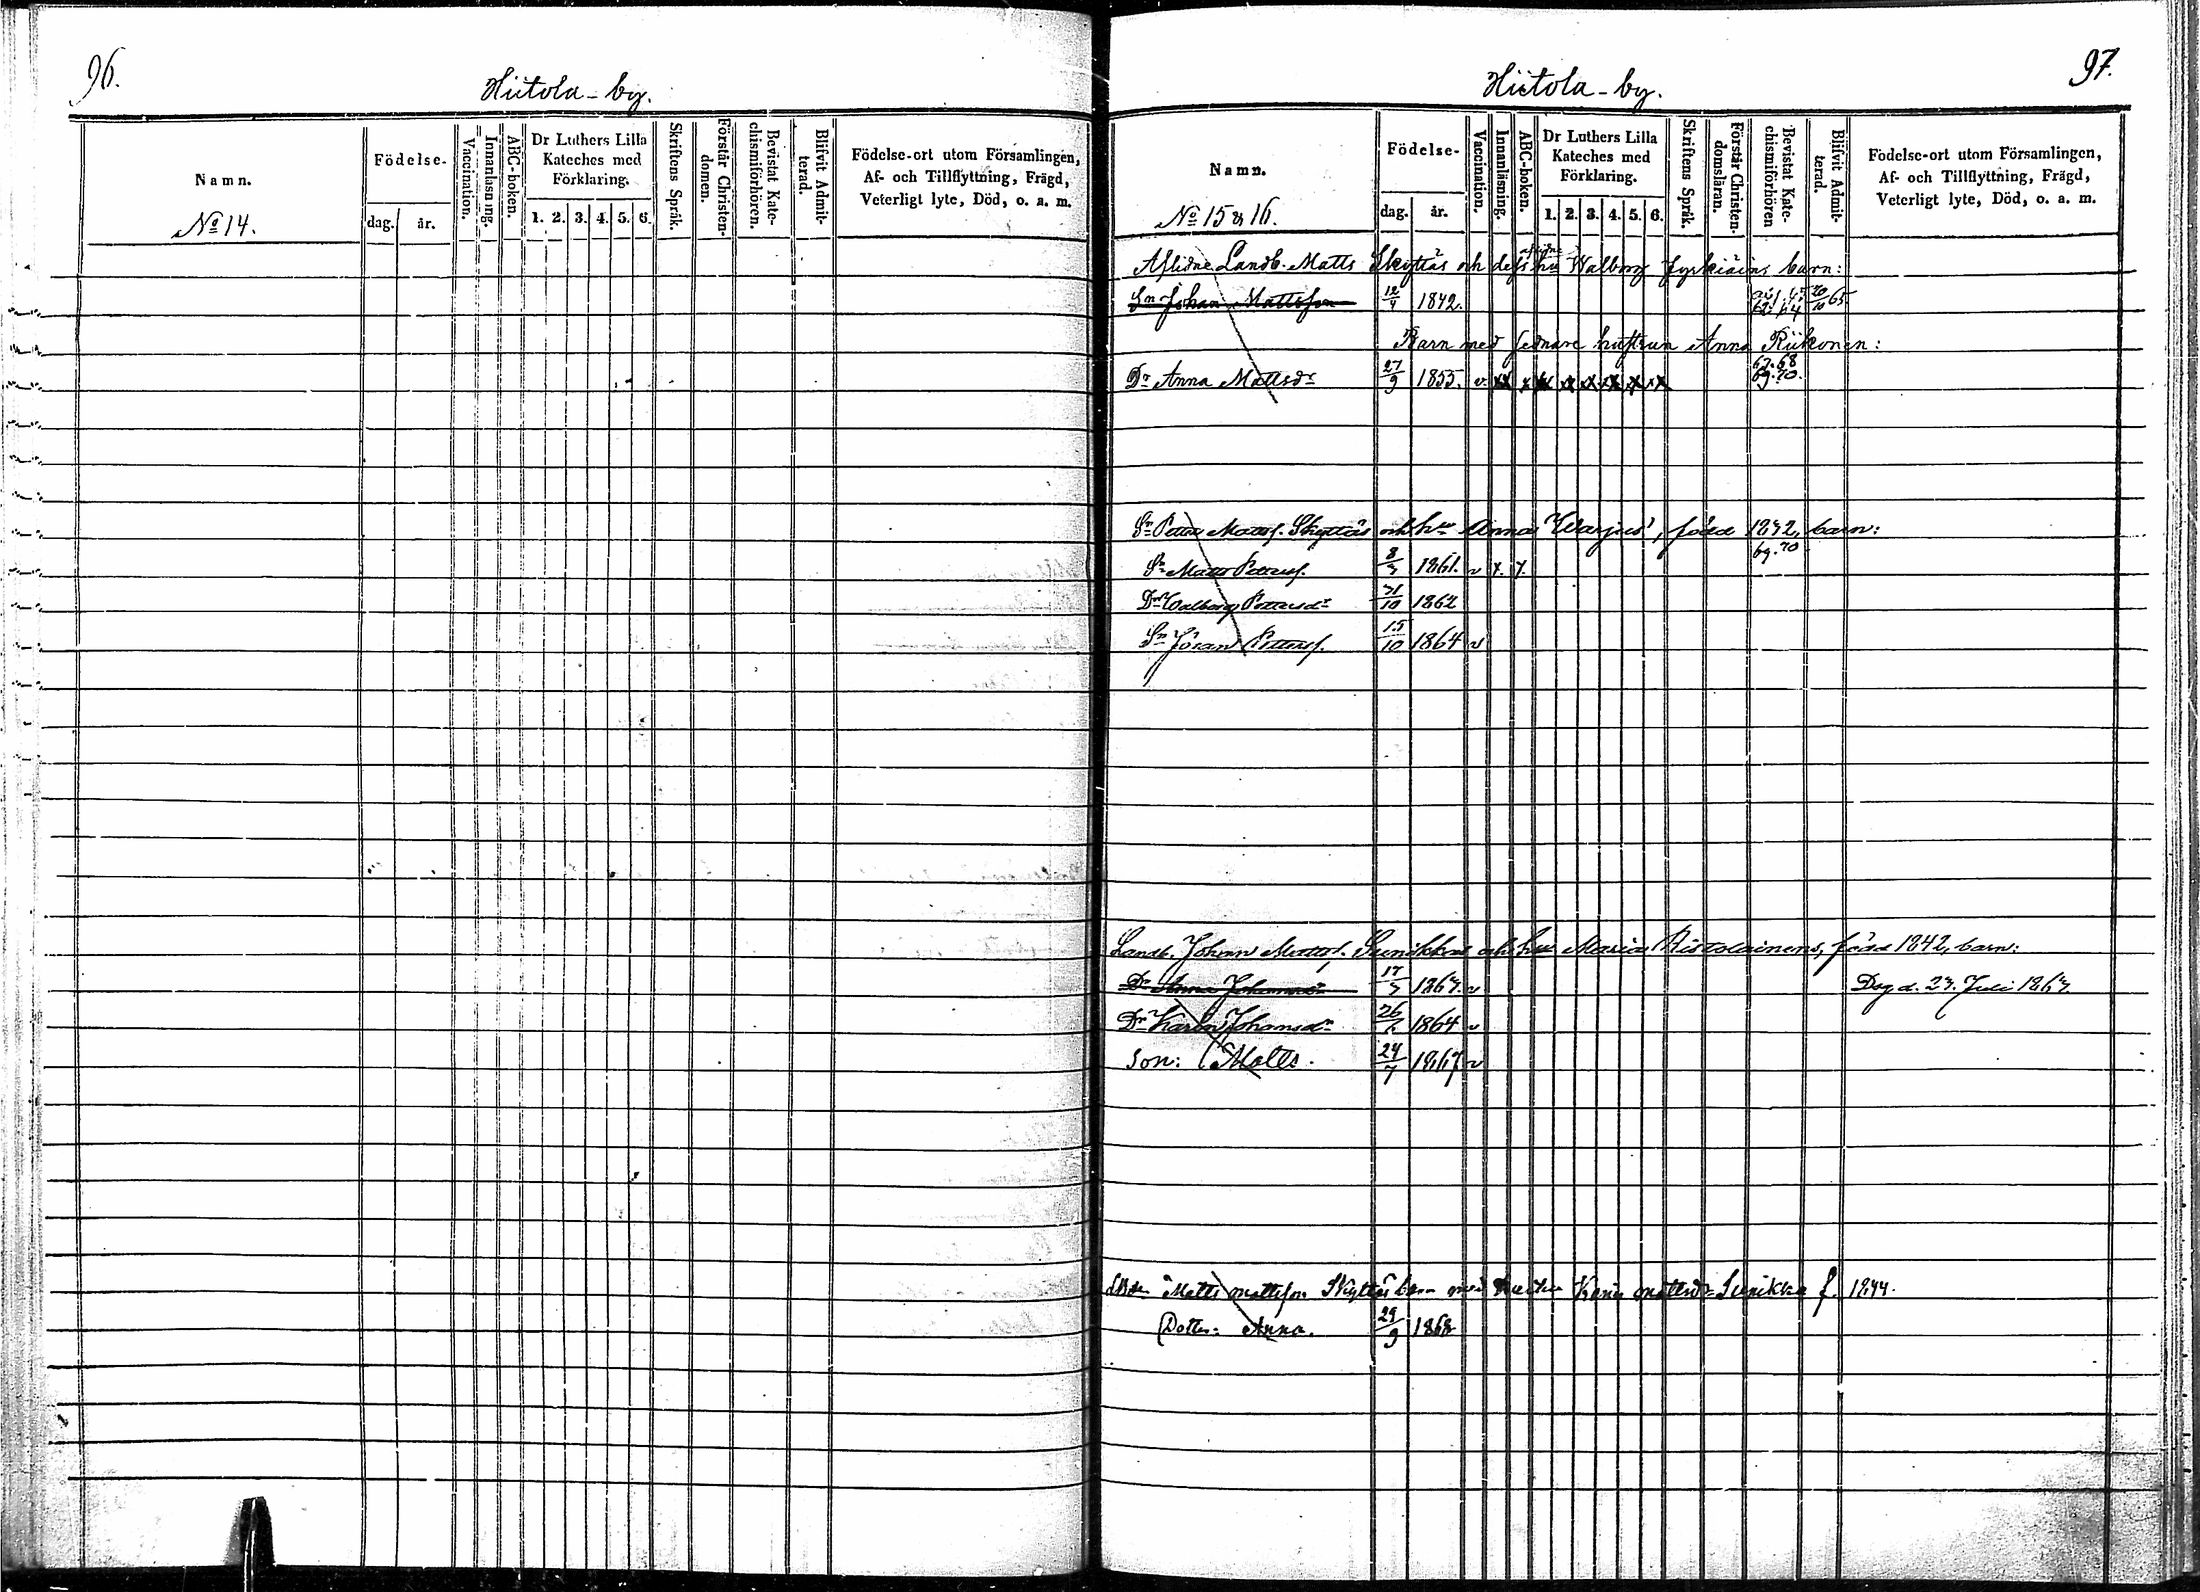 96.
Hiitola - by.
Namn.
Födelse-
dag. år.
Vaccination.
Innanläsning.
ABC-boken.
Dr Luthers Lilla
Kateches med
Förklaring.
1. 2. 3. 4. 5. 6.
Skriftens Språk.
Förstår Christen-
domen.
Bevistat Kate-
chismiförhören.
Blifvit Admit-
terad.
Födelse-ort utom Församlingen,
Af- och Tillflyttning, Frägd,
Veterligt lyte, Död, o. a. m.
No 14.
97.
Hiitola - by.
Namn.
Födelse-
dag. år.
Vaccination.
Innanläsning.
ABC-boken.
Dr Luthers Lilla
Kateches med
Förklaring.
1. 2. 3. 4. 5. 6.
Skriftens Språk.
Förstår Christen-
domsläran.
Bevistat Kate-
chismiförhören
Blifvit Admit-
terad.
Födelse-ort utom Församlingen,
Af- och Tillflyttning, Frägd,
Veterligt lyte, Död, o. a. m.
No 15 & 16.
Aflidne Landb. Matts Skyttäs och dess hu Walborg Jyrkiäins barn:
Sn Johan Mattsson 12/4 1842. 20/10 65
Barn med sednare hustrun Anna Riikonen:
Dr Anna Mattsdr 27/9 1855. v. xx x xx xx xx xx x xx 67. 68 69. 70.
Sn Petter Matts. Skyttäs och hu Anna Warjus, född 1842, barn:
Sn Matts Petters. 8/3 1861. v x. x. 69. 70
Dr Walborg Pettersdr 31/10 1862
Sn Jöran Petters. 15/10 1864 v
Landb. Johan Matts. Sunikkas och hu Maria Ristolainens, född 1842, barn:
Dr Anna Johansdr 17/3 1863. v Dog d. 23. Juli 1863.
Dr Karin Johansdr 26/6 1864 v
Son: Matts. 24/7 1867 v
Matts Mattsson Skyttäs barn med hustru Karin Mattsdr Sunikka f. 1844.
Dotter: Anna. 29/9 1868